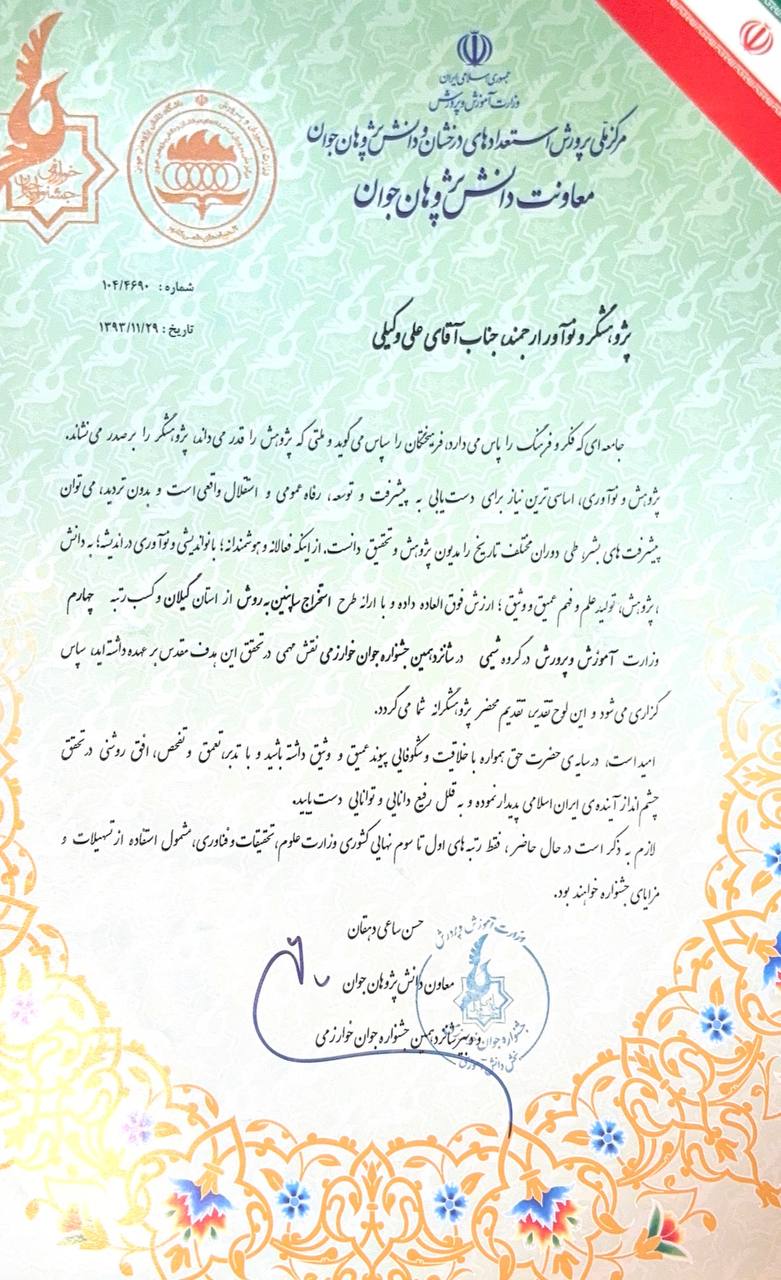 جمهوری اسلامی ایران
وزارت آموزش و پرورش
مرکز ملی پرورش استعدادهای درخشان و دانش پژوهان جوان
معاونت دانش پژوهان جوان
خوارزمی
جشنواره جوان
شماره : ۱۰۴/۴۶۹۰
تاریخ : ۱۳۹۳/۱۱/۲۹
پژوهشگر و نوآور ارجمند، جناب آقای علی وکیلی
جامعه ای که فکر و فرهنگ را پاس می دارد، فرهیختگان را سپاس می گوید و ملتی که پژوهش را قدر می داند، پژوهشگر را بر صدر می نشاند.
پژوهش و نوآوری، اساسی ترین نیاز برای دست یابی به پیشرفت و توسعه، رفاه عمومی و استقلال واقعی است و بدون تردید، می توان
پیشرفت های بشر، طی دوران مختلف تاریخ را مدیون پژوهش و تحقیق دانست. از اینکه فعالانه و هوشمندانه؛ با نواندیشی و نوآوری در اندیشه؛ به دانش
، پژوهش، تولید علم و فهم عمیق و وثیق ؛ ارزش فوق العاده داده و با ارائه طرح استخراج ساپونین به روش از استان گیلان و کسب رتبه چهارم
وزارت آموزش و پرورش در گروه شیمی در شانزدهمین جشنواره جوان خوارزمی نقش مهمی در تحقق این هدف مقدس بر عهده داشته اید، سپاس
گزاری می شود و این لوح تقدیر، تقدیم محضر پژوهشگرانه شما می گردد.
امید است، در سایه ی حضرت حق همواره با خلاقیت و شکوفایی پیوند عمیق و وثیق داشته باشید و با تدبر، تعمق و تفحص، افق روشنی در تحقق
چشم انداز آینده ی ایران اسلامی پدیدار نموده و به قلل رفیع دانایی و توانایی دست یابید.
لازم به ذکر است در حال حاضر ، فقط رتبه های اول تا سوم نهایی کشوری وزارت علوم، تحقیقات و فناوری، مشمول استفاده از تسهیلات و
مزایای جشنواره خواهند بود.
حسن ساعی دهقان
معاون دانش پژوهان جوان
و دبیر شانزدهمین جشنواره جوان خوارزمی
وزارت آموزش و پرورش
جشنواره جوان
بخش دانش آموزی